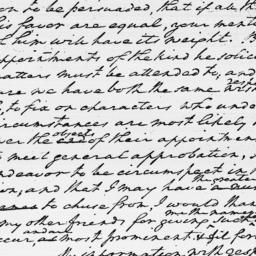 on to be persuaded, that if all th
his favor are equal, your ment
l him will have its weight. B
ppointments of the kind he solici
matters must be attended to, and
are we have both the same
, to fix on characters who unde
circumstances are most likely,
wer the objects of their appointmen
to meet general approbation, a
ndeavor to be circumspect in th
ion, and that I may have a
to chuse from, I would than
my other friends for giving
and are
occur, as most prominent & fit for
information with resp